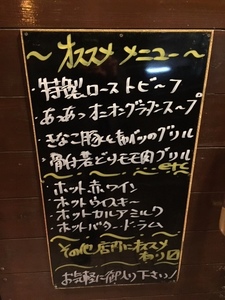 ～オススメメニュー～
・特製ローストビーフ
・あつあつオニオングラタンスープ
・きなこ豚とキャベツのグリル
・骨付若どりモモ肉グリル
～etc
・ホット赤ワイン
・ホットウイスキー
・ホットカルアミルク
・ホットバタードラム
その他店内にオススメ
あり
お気軽に御入り下さい!